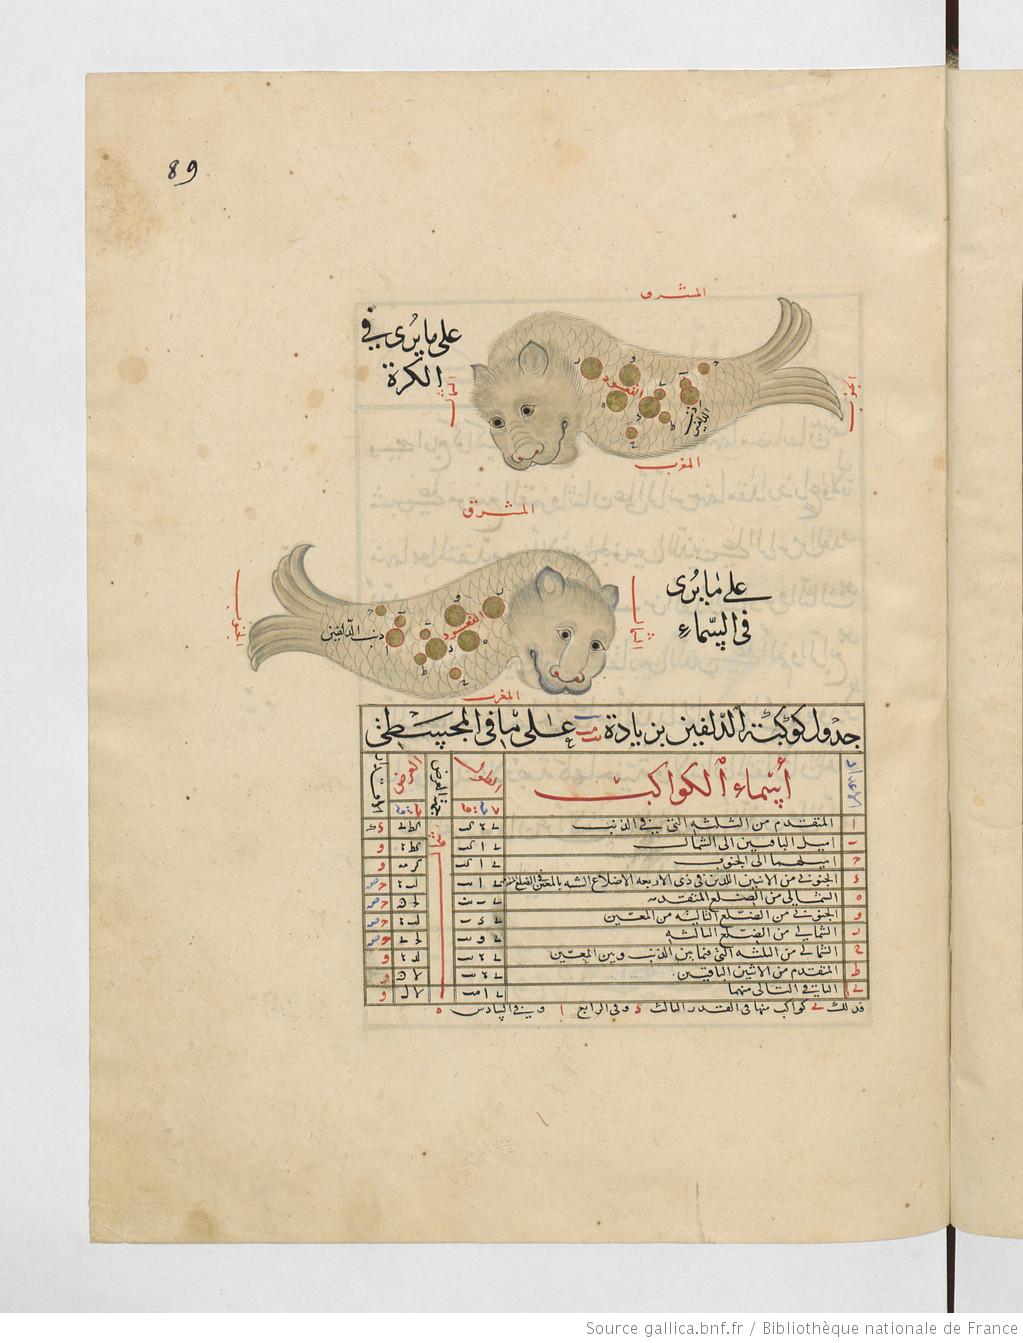 89
المشرق
على ما يُرى في
الكرة
الشمال
الجنوب
العنقود
ذنب
الدلفين
المغرب
المشرق
على ما يُرى
في السماء
الشمال
الجنوب
العنقود
ذنب الدلفين
المغرب
جدول كوكبة الدلفين بزيادة على ما في المجسطي
الاعداد
أسماء الكواكب
الطول
جهة العرض
العرض
الاقدار
ا المتقدم من الثلثة التي في الذنب
ب اميل الباقيين الى الشمال
ج اميلهما الى الجنوب
د الجنوبي من الاثنين اللذين في ذي الاربعة الاضلاع الشبيه بالمعين
ه الشمالي من الضلع المتقدمة
و الجنوبي من الضلع التالية من المعين
ز الشمالي من الضلع التالية
ح الشمالي من الثلثة التي فيما بين الذنب وبين المعين
ط المتقدم من الاثنين الباقيين
ي الباقي التالي منهما
فذلك ي كواكب منها في القدر الثالث وفي الرابع ا وفي السادس
Source gallica.bnf.fr / Bibliothèque nationale de France